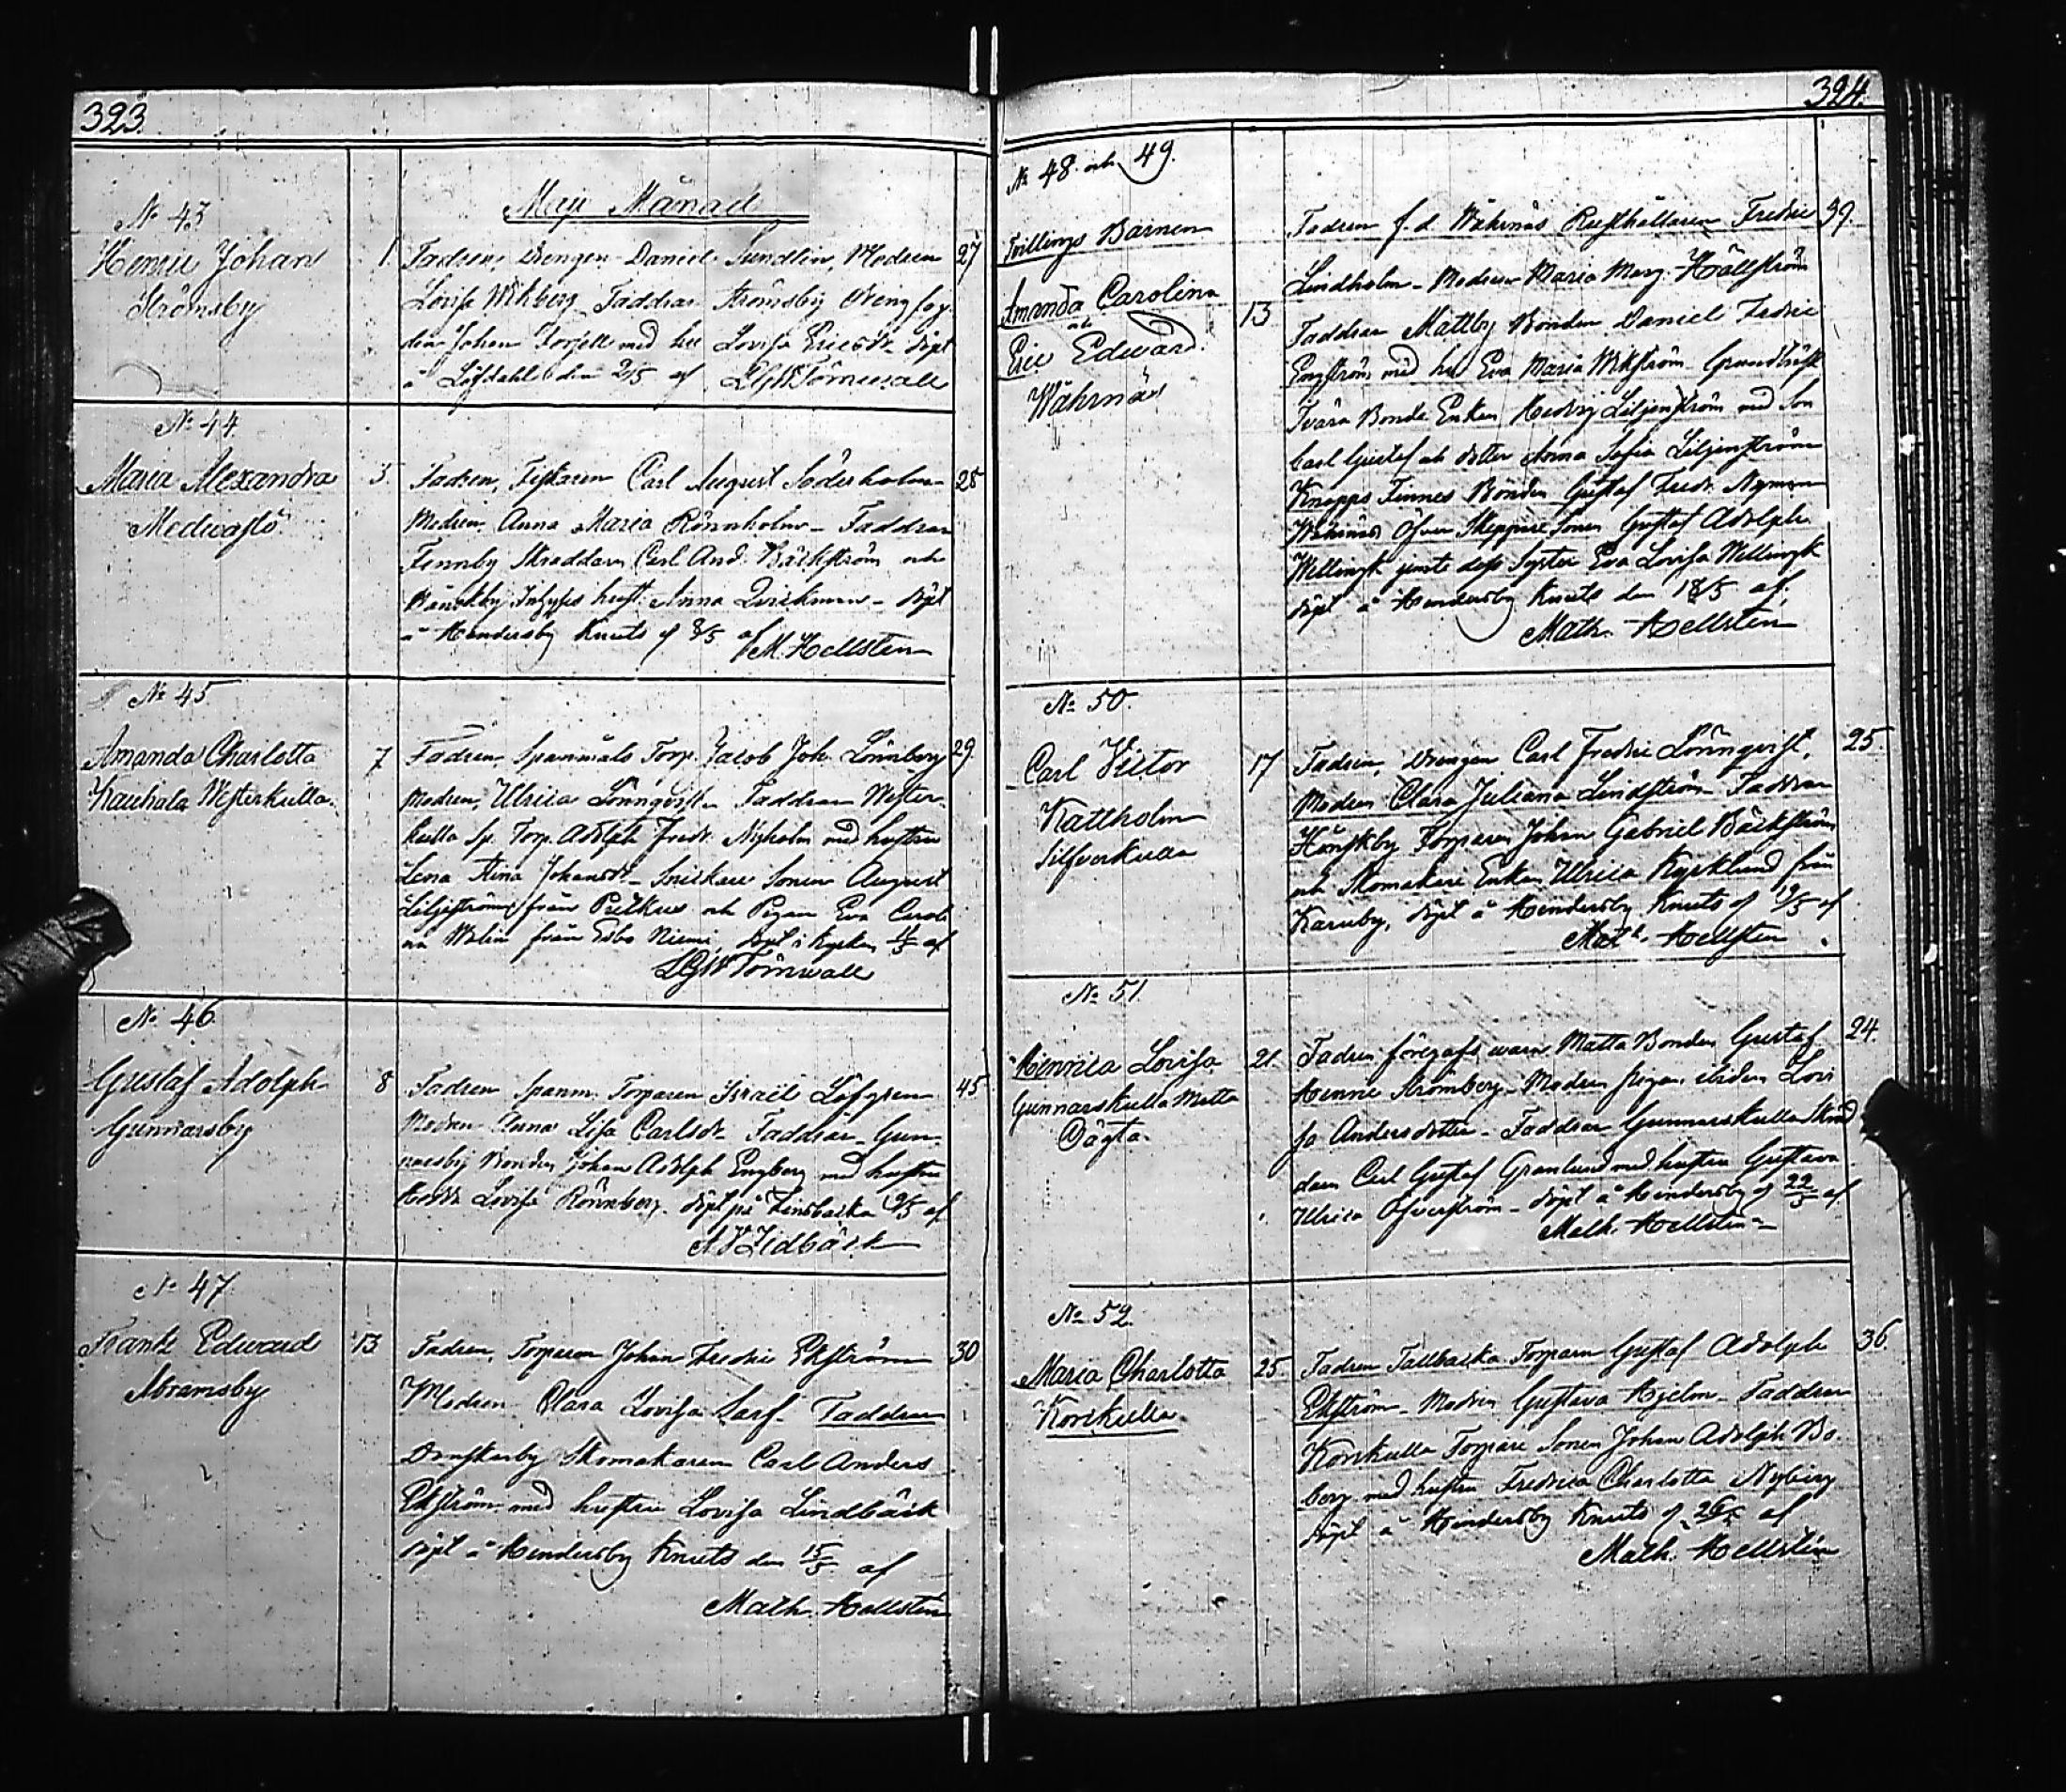 323.
Maji Månad
No 43
Henric Johan
Strömsby
1.
Fadren, Drengen Daniel Sundlin, Modren
Lovisa Wikberg Faddrar Strömsby Dreng fog
den Johan Forsell med hu Lovisa Ericsdr döpt
å Löfdahl den 2/5 af LGWTörnwall
27
No 44.
Maria Alexandra
Medwastö
3
Fadren, Fiskaren Carl August Söderholm
Modren Anna Maria Rönnholm – Faddrar
Finnby Skraddarn Carl And. Bäckström och
Inhyses hust: Anna – döpt
å Hendersby Knuts d 8/5 af
M. Hellsten
28
No 45
Amanda Charlotta
Kauhala Westerkulla.
7
Fadren Spanmåls Torp. Jacob Joh. Lönnberg
Modren, Ulrica Lönnqvist – Faddrar Wester-
kulla Sp. Torp. Adolph Fredr. Nyholm med hustru
Lena Stina Johansdr – Snickare Sonen August
Liljeström från och Pigan Eva Caroli
na Welin från Esbo Niemi, döpt i kyrkan 11/5 af
LGWTörnwall
29.
No. 46.
Gustaf Adolph
Gunnarsby
8
Fadren Spanm. Torparen Israël Löfgren
Modren Anna Lisa Carlsdr Faddrar – Gun-
narsby Bonden Johan Adolph Engberg med hustru
Hedda Lovisa Rönnberg. döpt på Finsbacka 9/5 af
45
No 47.
Frantz Edward
Abramsby
13
Fadren, Torparen Johan Fredric Ekström
Modren Clara Lovisa Sarf – Faddrar
Donskarby Skomakaren Carl Anders
Ekström med hustru Lovisa Lindbäck
döpt å Hendersby Knuts den 15/5 af
Math. Hellsten
30
324.
No 48. och 49.
Tvillings Barnen
Amanda Carolina
och
Eric Edward.
Wåhrnäs
13
Fadren f.d. Wåhrnäs Rusthållaren Fredric
Lindholm – Modren Maria Marg. Hällström
Faddrar Mattby Bonden Daniel Fredric
Engström med hu Eva Maria Wikström
Tvära Bonde Enkan Hedvig Liljenström med Son
Carl Gustaf och dotter Anna Sofia Liljenström
Knapps Finnes Bonden Gustaf Fredr. Nyman
Wåhrnäs Öfver Skeppare Sonen Gustaf Adolph
Wellingk jemte dess Syster Eva Lovisa Wellingk
döpt å Hendersby Knuts den 18/5 af
Math. Hellsten
39.
No 50.
Carl Victor
Kattholm
17
Fadren, Drengen Carl Fredric Lönnqvist,
Modren Clara Juliana Lindström – Faddrar
Hönskby Torparen Johan Gabriel Bäckström
och Skomakare Enkan Ulrica Kyrklund från
Karuby, döpt å Hendersby Knuts d 19/5 af
Math. Hellsten
25.
No 51.
Henrica Lovisa
Gunnarskulla Matta
21.
Fadren föregafs wara Matta Bonden Gustaf
Henric Strömberg – Modren pigan ibidem Lovi
sa Andersdotter – Faddrar Gunnarskulla Skräd
darn Carl Gustaf Granlund med hustru Gustava
Ulrica Öfverström – döpt å Hendersby d 22/5 af
Math. Hellsten
24.
No 52.
Maria Charlotta
Korskulla
25
Fadren Tallbacka Torparn Gustaf Adolph
Ekström – Modren Gustava Hjelm – Faddrar
Korskulla Torpare Sonen Johan Adolph Bo-
berg med hustru Fredrica Charlotta Nyberg
döpt å Hendersby Knuts d 26/5 af
Math. Hellsten
36